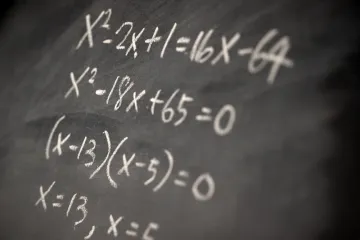 x²-2x+1=16x-64
x²-18x+65=0
(x-13)(x-5)=0
x=13, x=5